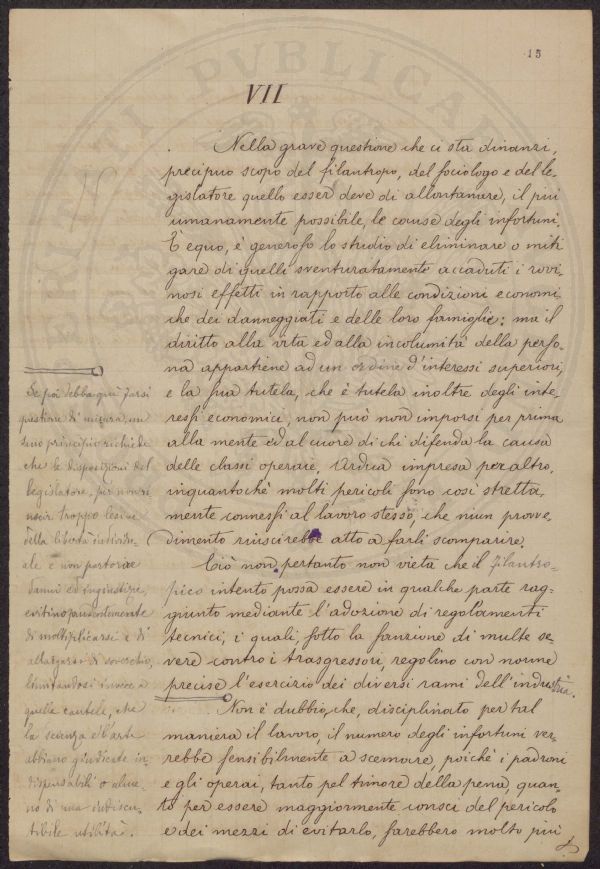 15
VII
Nella grave questione che ci sta dinanzi,
precipuo scopo del filantropo, del sociologo e del le-
gislatore quello esser deve di allontanare, il più
umanamente possibile, le cause degli infortuni.
È equo, è generoso lo studio di eliminare o miti-
gare di quelli sventuratamente accaduti i rovi-
nosi effetti in rapporto alle condizioni economi-
che dei danneggiati e delle loro famiglie: ma il
diritto alla vita ed alla incolumità della perso-
na appartiene ad un ordine d'interessi superiori,
e la sua tutela, che è tutela inoltre degli inte-
ressi economici, non può non imporsi per prima
alla mente ed al cuore di chi difenda la causa
delle classi operaie. Ardua impresa per altro,
inquantochè molti pericoli sono così stretta-
mente connessi al lavoro stesso, che niun provve-
dimento riuscirebbe atto a farli scomparire.
Ciò non pertanto non vieta che il filantro-
pico intento possa essere in qualche parte rag-
giunto mediante l'adozione di regolamenti
tecnici, i quali, sotto la sanzione di multe se-
vere contro i trasgressori, regolino con norme
precise l'esercizio dei diversi rami dell'industria.
Non è dubbio, che, disciplinato per tal
maniera il lavoro, il numero degli infortuni ver-
rebbe sensibilmente a scemare, poichè i padroni
e gli operai, tanto pel timore della pena, quan-
to per essere maggiormente consci del pericolo
e dei mezzi di evitarlo, sarebbero molto più
Se poi debba qui farsi
questione di misura, un
sano principio richiede
che le disposizioni del
legislatore, per non ri-
uscir troppo lesive
della libertà individu-
ale e non partorire
danni ed ingiustizie,
evitino prudentemente
di moltiplicarsi e di
allargarsi di soverchio,
limitandosi invece a
quelle cautele, che
la scienza e l'arte
abbiano giudicate in-
dispensabili o alme-
no di una indiscu-
tibile utilità.